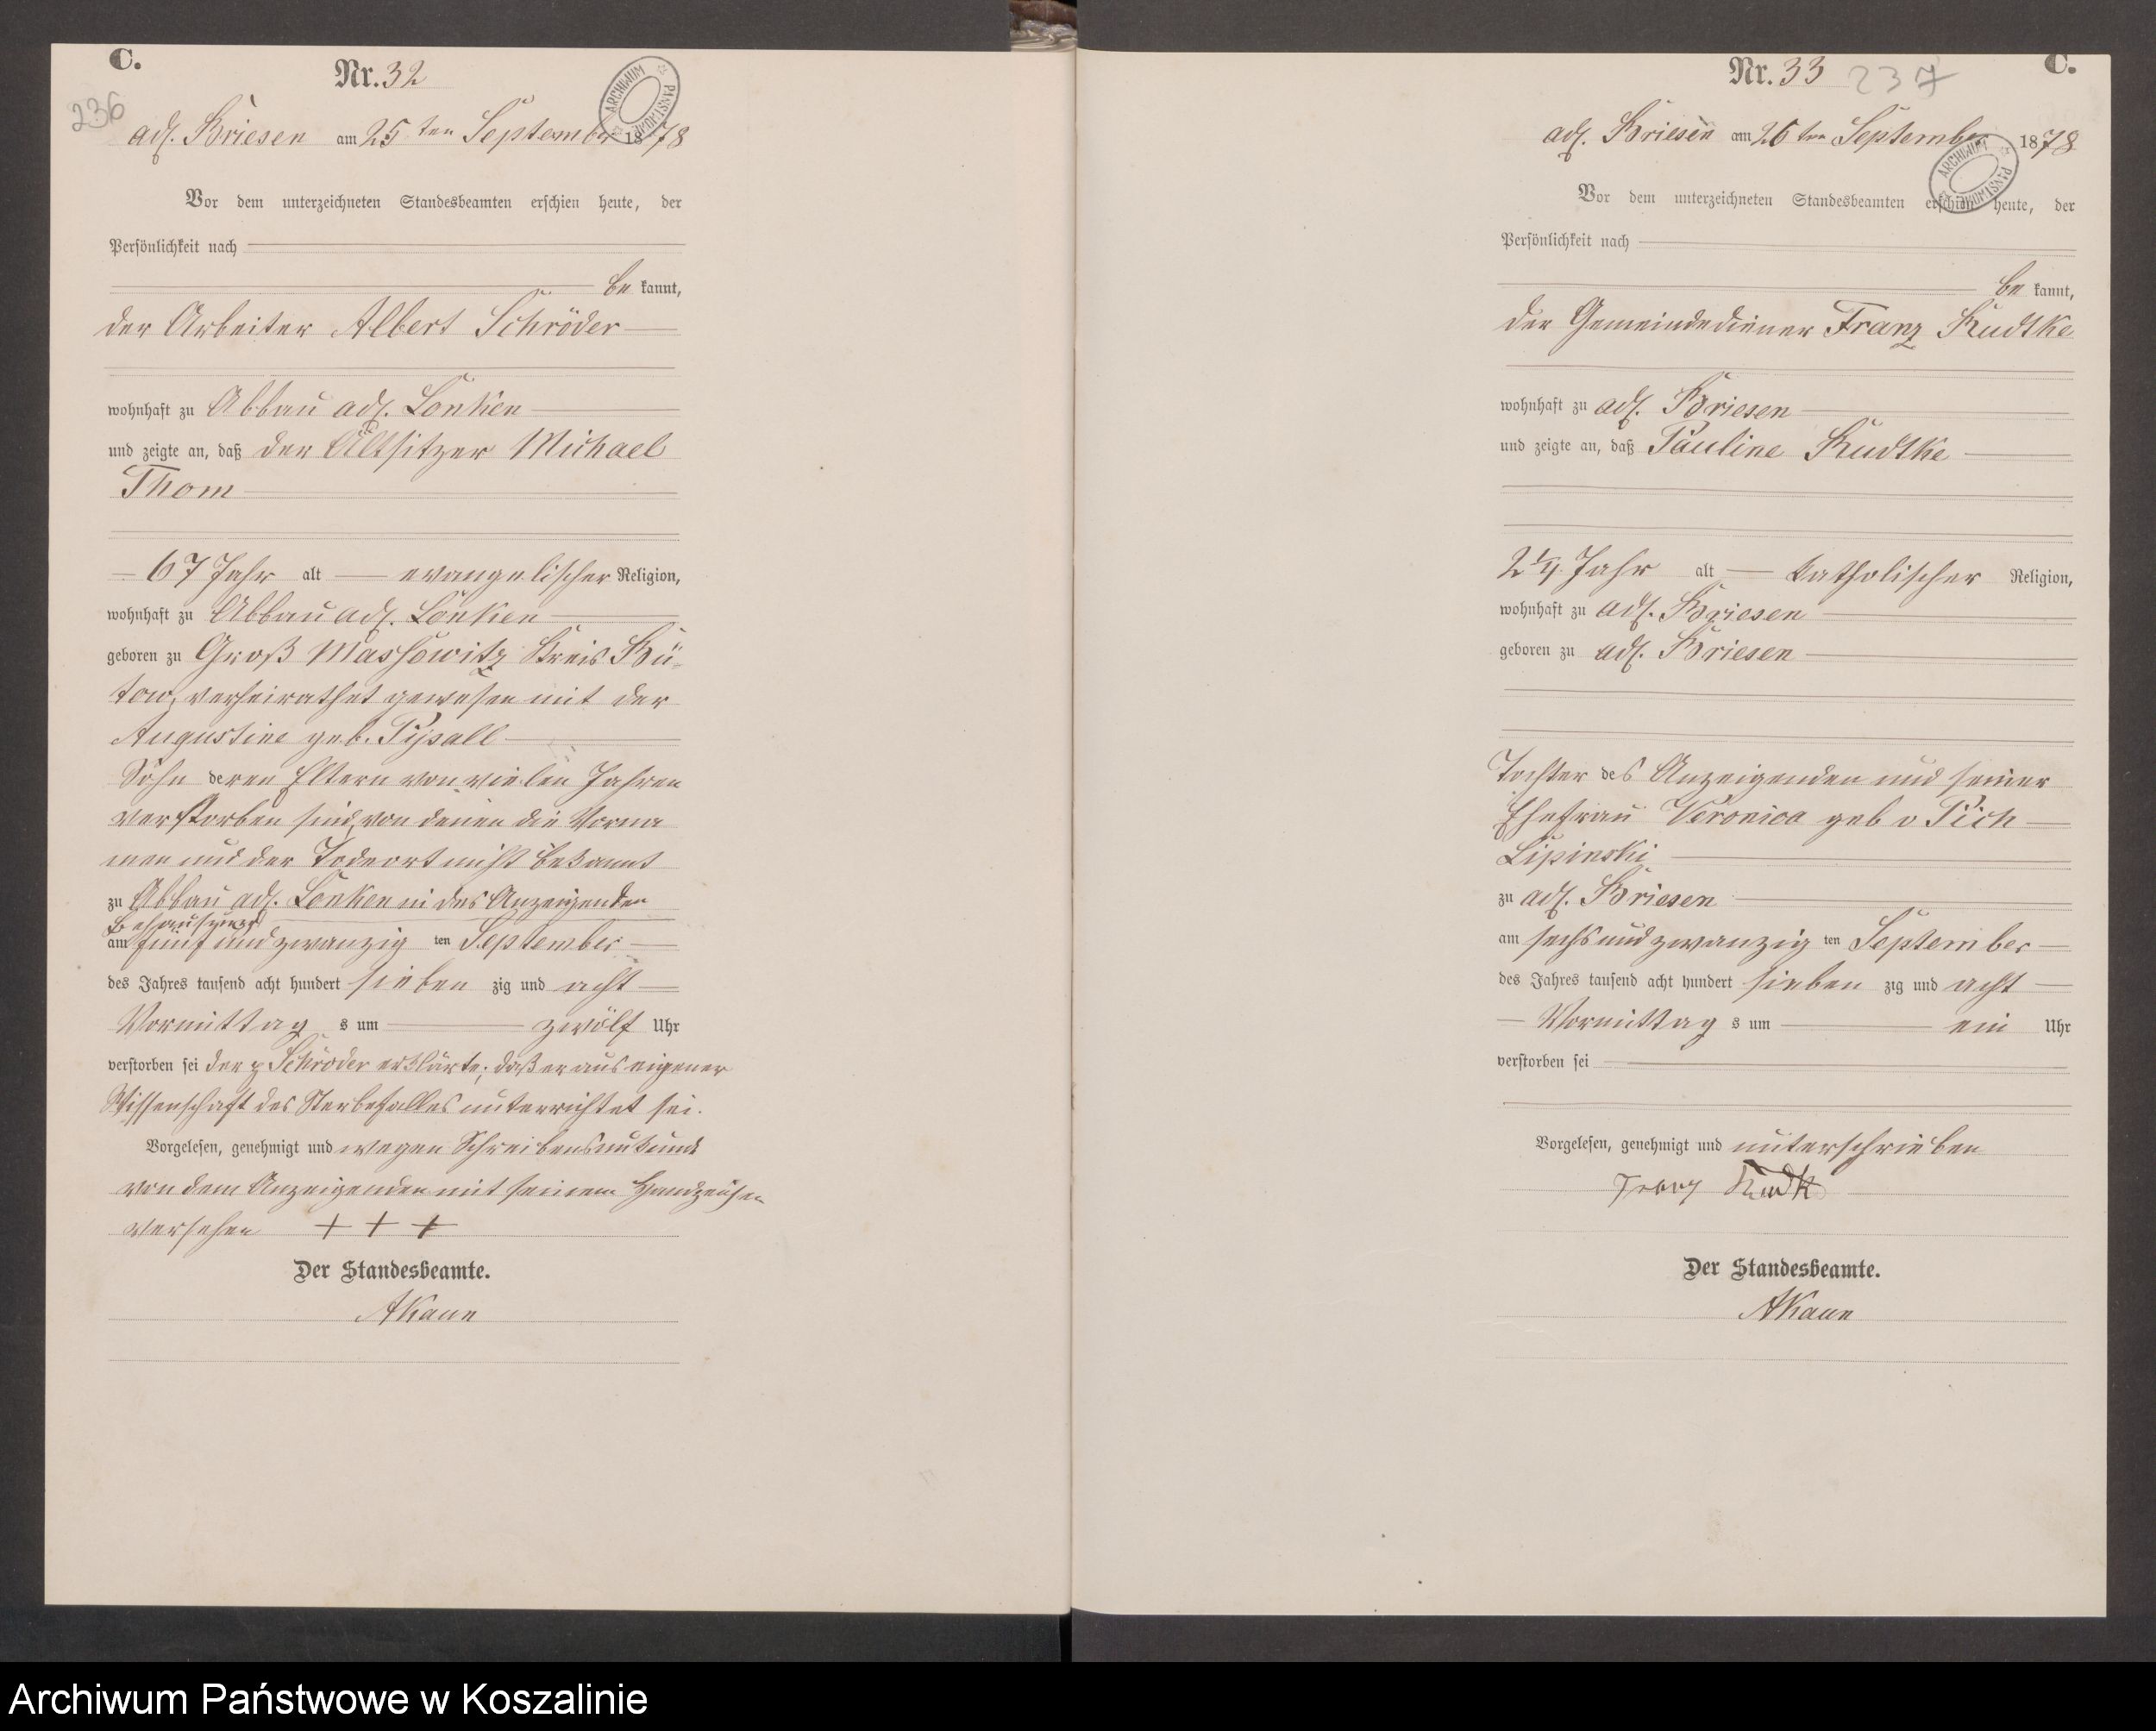 C.
Nr. 32
236
ARCHIWUM PAŃSTWOWE
adl. Briesen am 25 ten September 1878
Vor dem unterzeichneten Standesbeamten erschien heute, der
Persönlichkeit nach
be kannt,
der Arbeiter Albert Schröder
wohnhaft zu Abbau adl. Lonken
und zeigte an, daß der Altsitzer Michael
Thom
67 Jahr alt evangelischer Religion,
wohnhaft zu Abbau adl. Lonken
geboren zu Groß Massowitz Kreis Bü-
tow, verheirathet gewesen mit der
Augustine geb. Pysall
Sohn deren Eltern von vielen Jahren
verstorben sind, von denen die Vorna
men und der Todeort nicht bekannt
zu Abbau adl. Lonken in des Anzeigenden
Behausung
am fünf und zwanzig ten September
des Jahres tausend acht hundert sieben zig und acht
Vormittag s um zwölf Uhr
verstorben sei der p Schröder erklärte, daß er aus eigener
Wissenschaft des Sterbefalles unterrichtet sei.
Vorgelesen, genehmigt und wegen Schreibensunkunde
von dem Anzeigenden mit seinem Handzeichen
versehen + + +
Der Standesbeamte.
AKaun
C.
Nr. 33
237
ARCHIWUM PAŃSTWOWE
adl. Briesen am 26 ten September 1878
Vor dem unterzeichneten Standesbeamten erschien heute, der
Persönlichkeit nach
be kannt,
der Gemeindediener Franz Kudtke
wohnhaft zu adl. Briesen
und zeigte an, daß Pauline Kudtke
2 1/4 Jahr alt katholischer Religion,
wohnhaft zu adl. Briesen
geboren zu adl. Briesen
Tochter des Anzeigenden und seiner
Ehefrau Veronica geb v Pich
Lipinski
zu adl. Briesen
am sechs und zwanzig ten September
des Jahres tausend acht hundert sieben zig und acht
Vormittag s um ein Uhr
verstorben sei
Vorgelesen, genehmigt und unterschrieben
Franz Kudtk
Der Standesbeamte.
AKaun
Archiwum Państwowe w Koszalinie